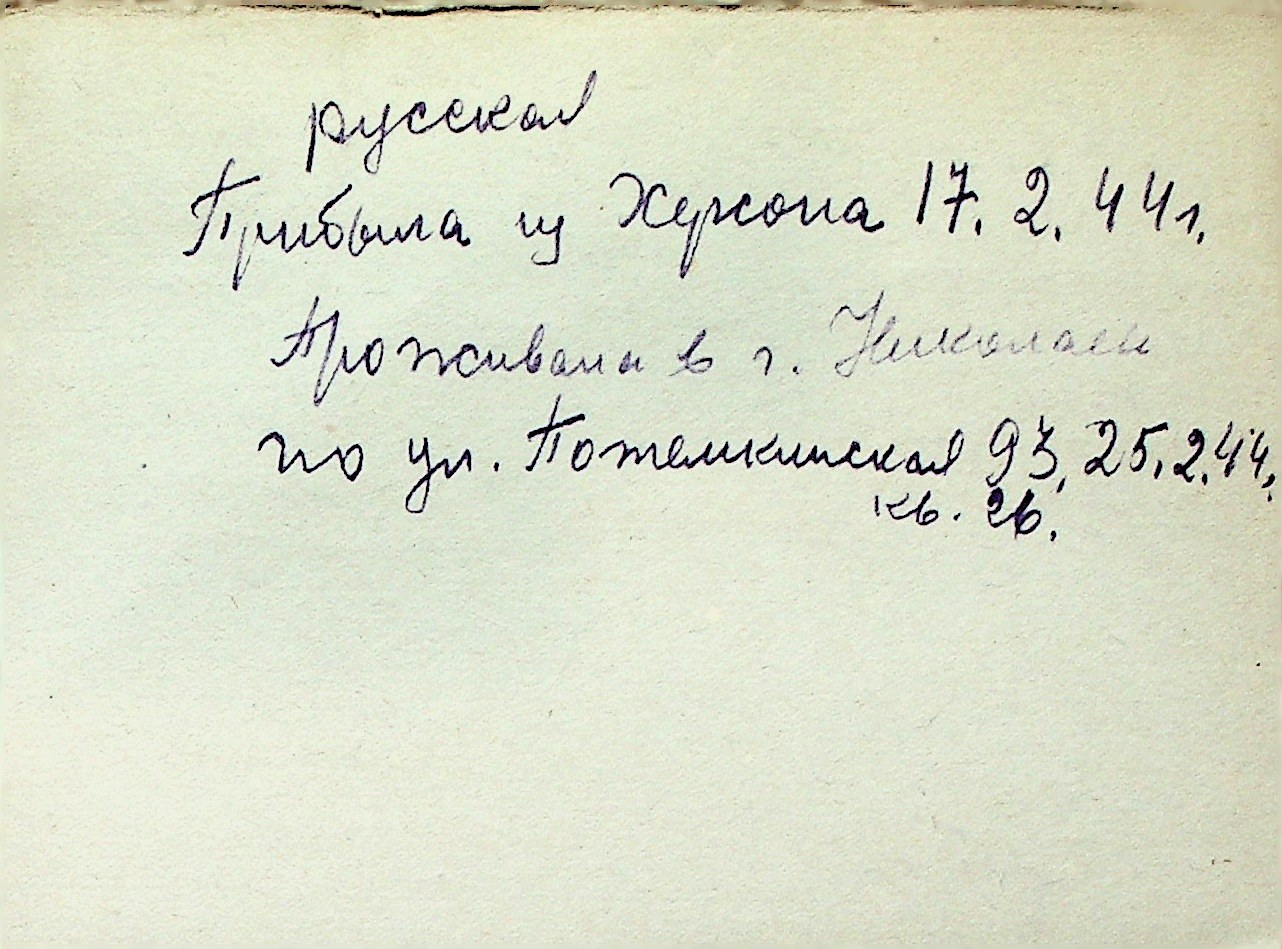 русская
Прибыла из Херсона 17. 2. 44 г.
Проживала в г. Николаеве
по ул. Потемкинская 93, 25.2.44.
кв. 26.